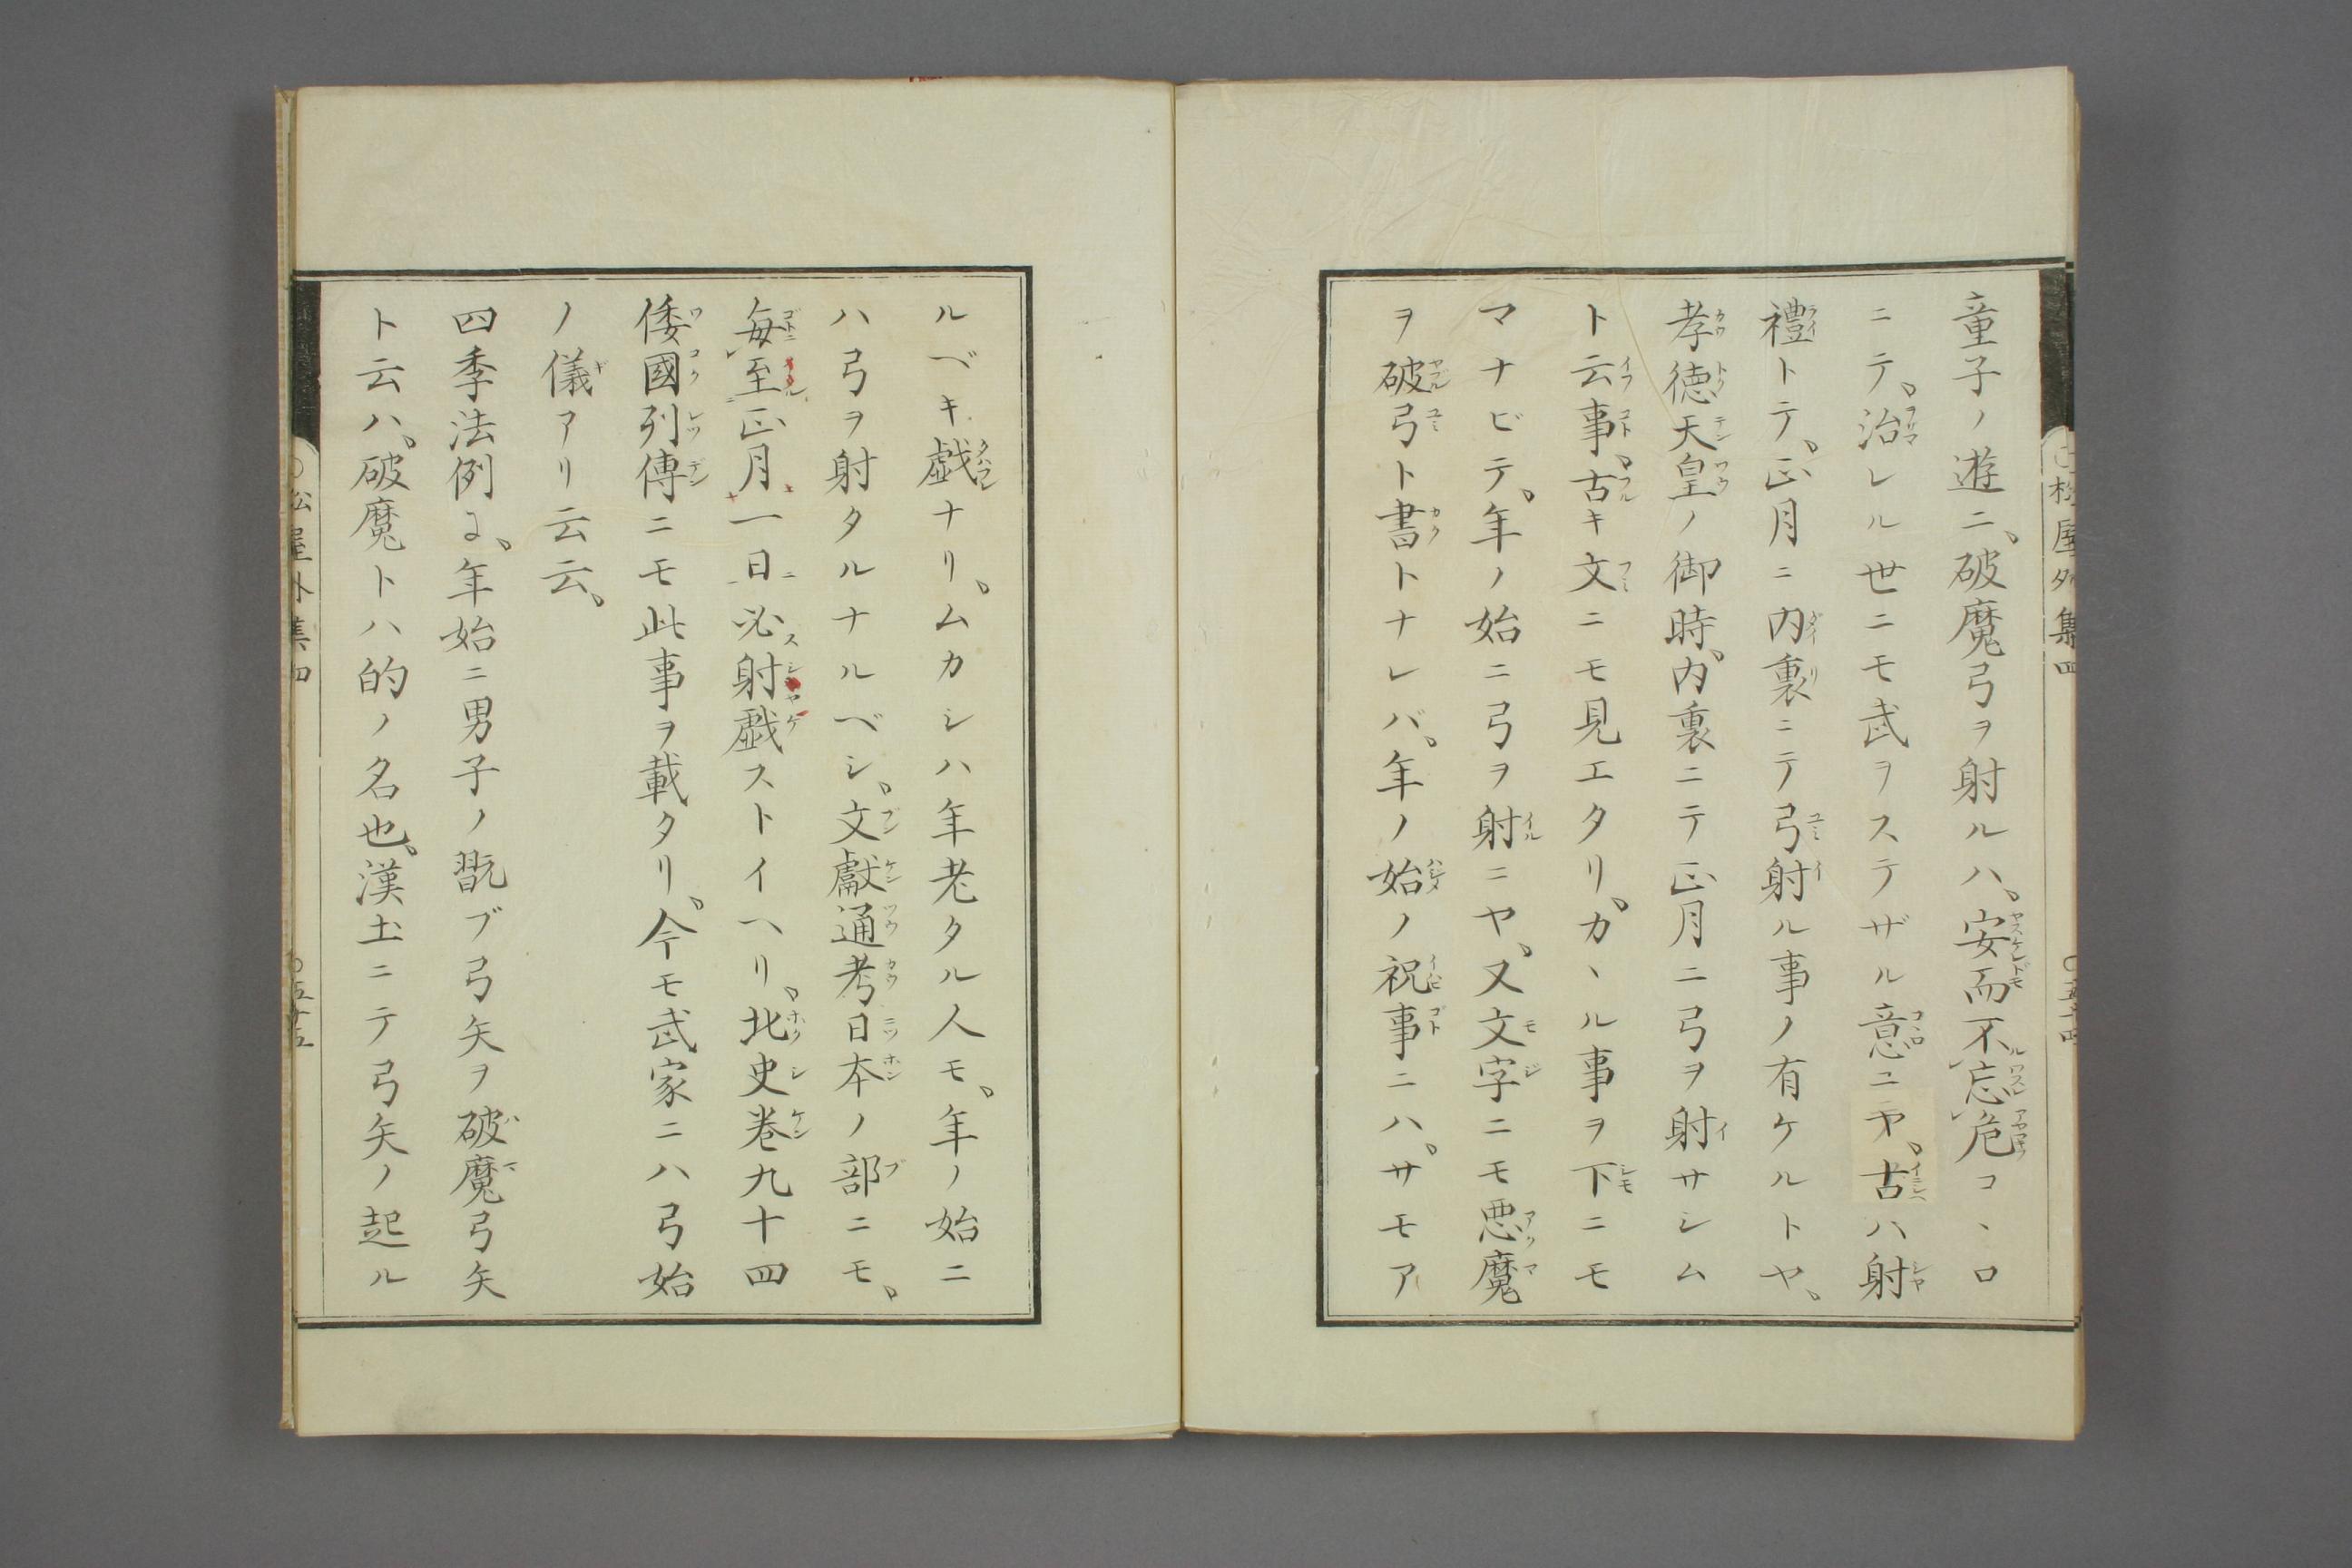 童子ノ遊ニ、破魔弓ヲ射ルハ、安而不忘危コヽロ
ニテ、治レル世ニモ武ヲステザル意ニヤ、古ハ射
禮トテ、正月ニ内裏ニテ弓射ル事ノ有ケルトヤ、
孝徳天皇ノ御時、内裏ニテ正月ニ弓ヲ射サシム
ト云事、古キ文ニモ見エタリ、カヽル事ヲ下ニモ
マナビテ、年ノ始ニ弓ヲ射ニヤ、又文字ニモ悪魔
ヲ破弓ト書トナレバ、年ノ始ノ祝事ニハ、サモア
ルベキ戯ナリ、ムカシハ年老タル人モ、年ノ始ニ
ハ弓ヲ射タルナルベシ、文獻通考日本ノ部ニモ、
毎至正月一日必射戯ストイヘリ、北史巻九十四
倭國列傳ニモ此事ヲ載タリ、今モ武家ニハ弓始
ノ儀アリ云云、
四季法例ニ、年始ニ男子ノ翫ブ弓矢ヲ破魔弓矢
ト云ハ、破魔トハ的ノ名也、漢土ニテ弓矢ノ起ル
松屋外集四
〇五十五